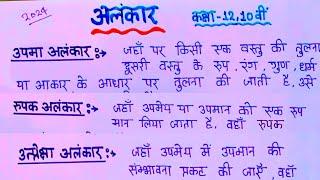 2024
अलंकार
कक्षा-12,10वीं
उपमा अलंकार:→ जहाँ पर किसी एक वस्तु की तुलना
दूसरी वस्तु के रूप, रंग, गुण, धर्म
या आकार के आधार पर तुलना की जाती है, उसे
रूपक अलंकार:→ जहाँ उपमेय या उपमान की एक रूप
मान लिया जाता है, वहाँ रूपक
उत्प्रेक्षा अलंकार:→ जहाँ उपमेय में उपमान की
सम्भावना प्रकट की जाएँ, वहाँ